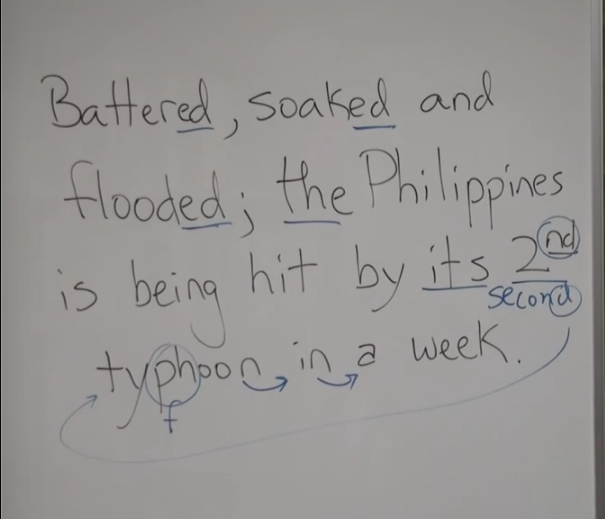 Battered, soaked and
flooded; the Philippines
is being hit by its 2nd
second
typhoon in a week.
f